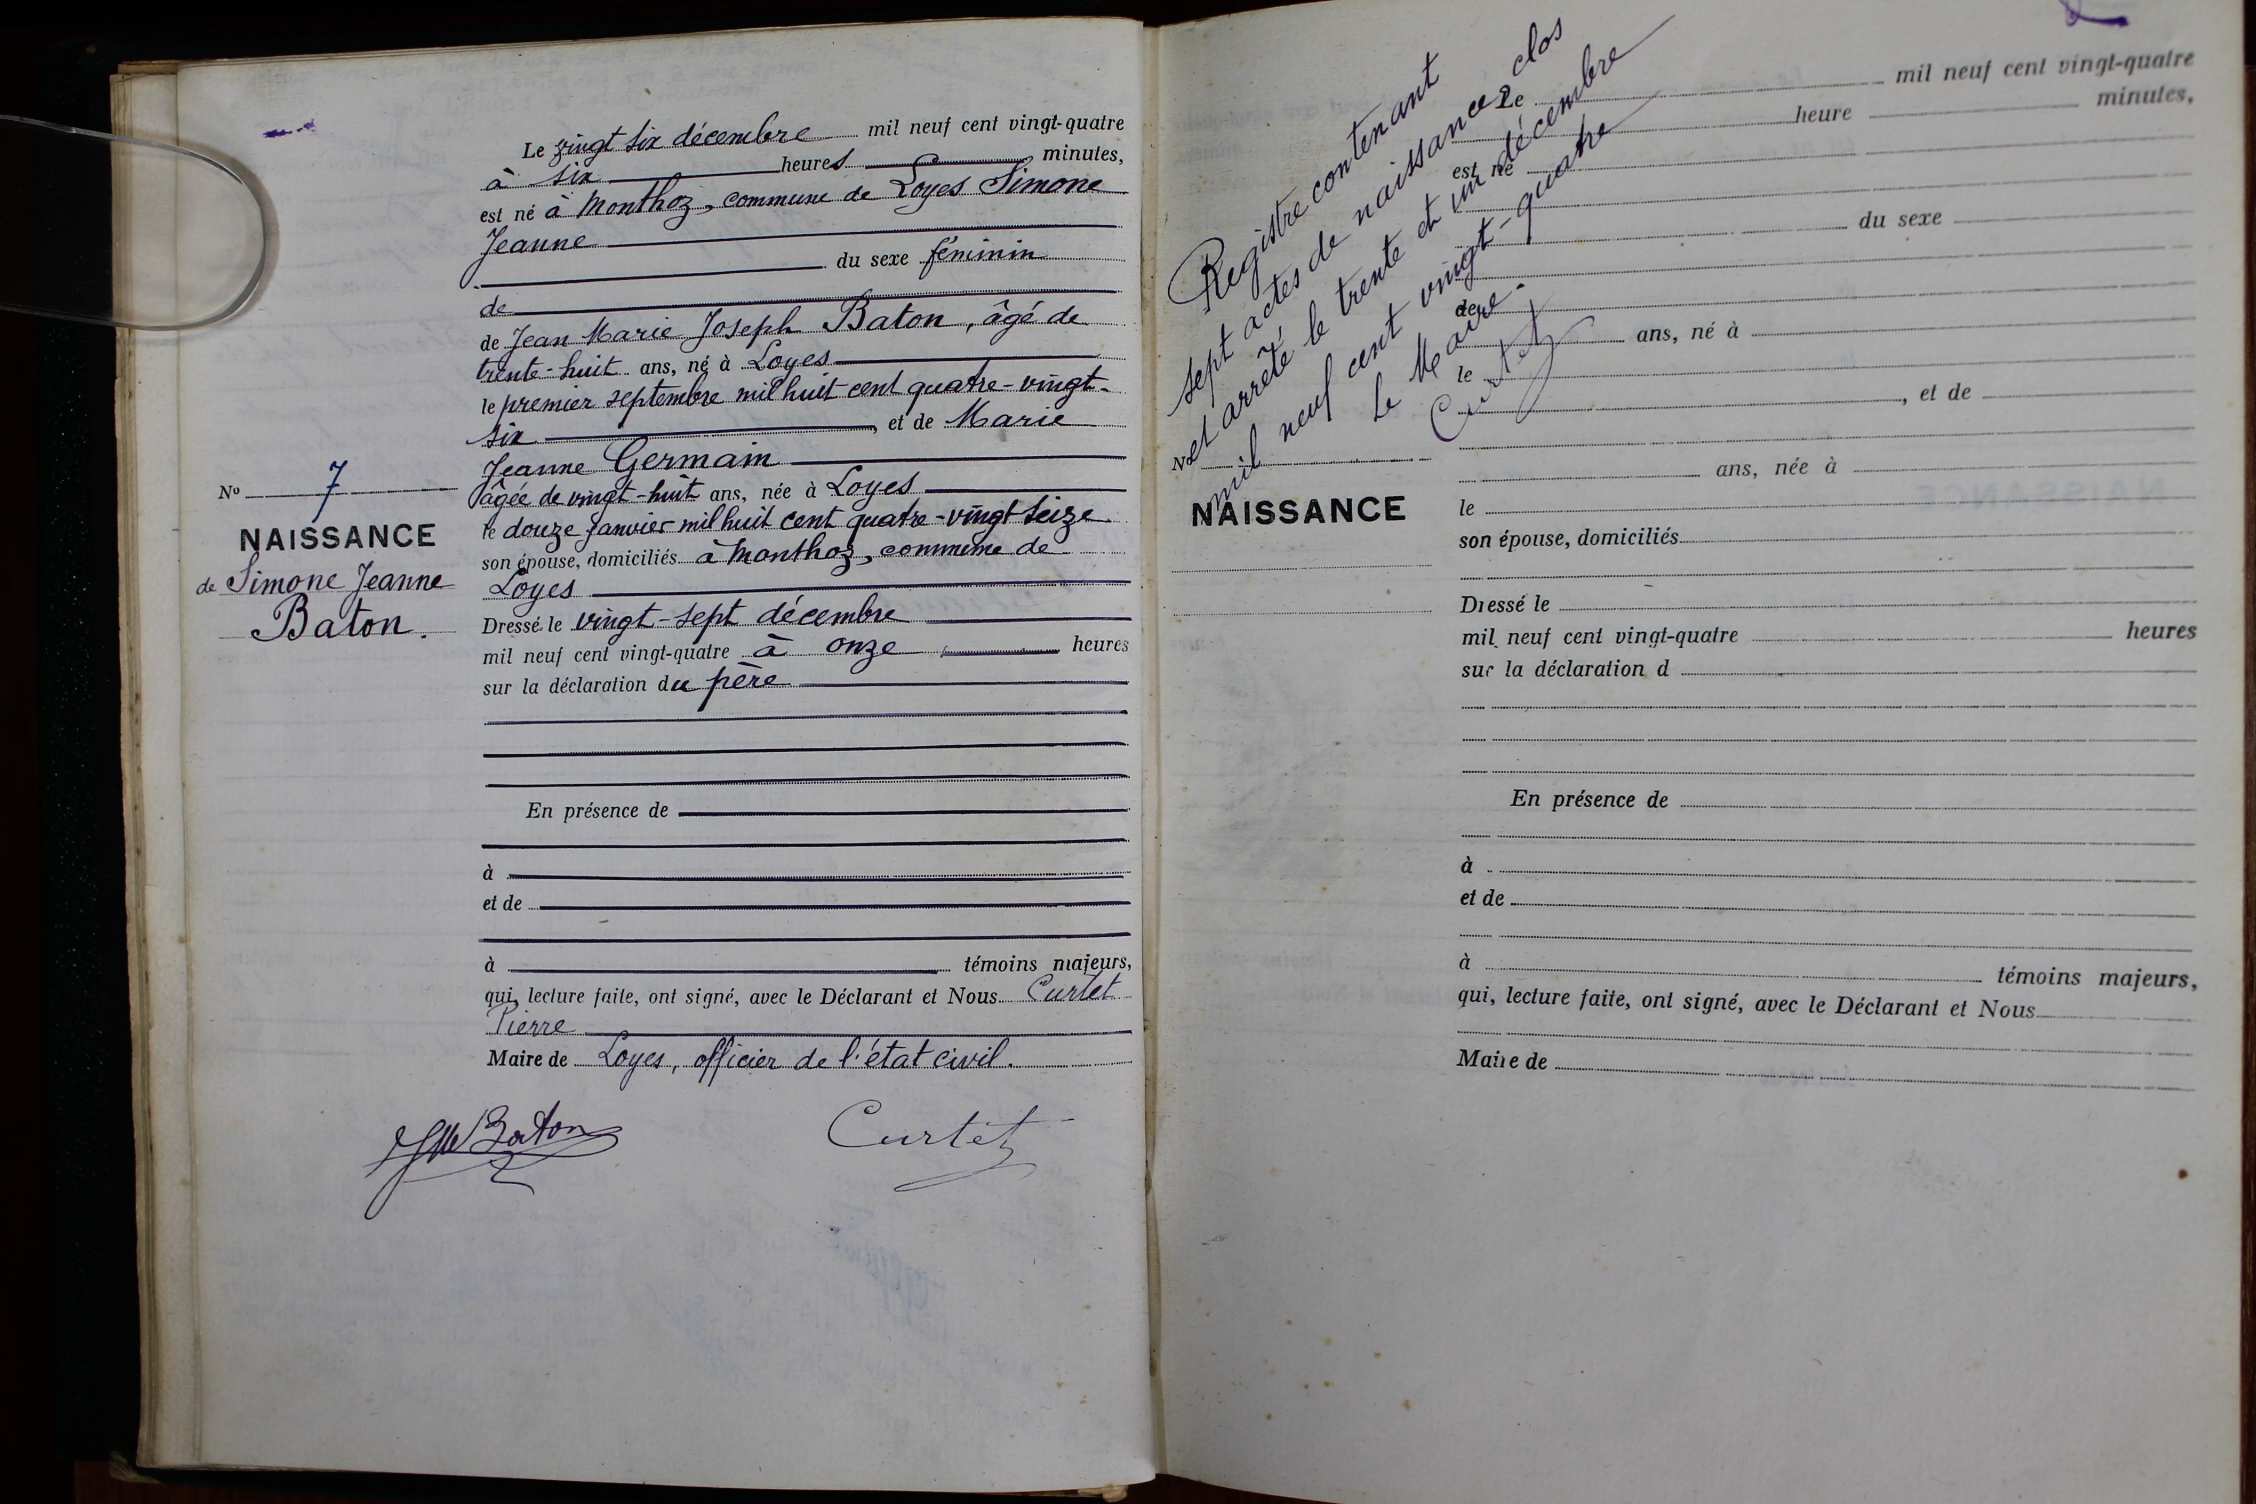 Le vingt six décembre mil neuf cent vingt-quatre
à six heures minutes,
est né à Monthoz, commune de Loyes Simone
Jeanne
du sexe féminin
de
de Jean Marie Joseph Baton, âgé de
trente-huit ans, né à Loyes
le premier septembre mil huit cent quatre-vingt-
six , et de Marie
Jeanne Germain
âgée de vingt-huit ans, née à Loyes
le douze janvier mil huit cent quatre-vingt seize
son épouse, domiciliés à Monthoz, commune de
Loyes
Dressé le vingt-sept décembre
mil neuf cent vingt-quatre à onze heures
sur la déclaration du père
En présence de
à
et de
à témoins majeurs,
qui, lecture faite, ont signé, avec le Déclarant et Nous Curtet
Pierre
Maire de Loyes, officier de l'état civil.
Baton
Curtet
No 7
NAISSANCE
de Simone Jeanne
Baton.
Registre contenant
sept actes de naissances clos
et arrêté le trente et un décembre
mil neuf cent vingt-quatre
Le Maire.
Curtet
Le mil neuf cent vingt-quatre
heure minutes,
est né
du sexe
de
ans, né à
le
, et de
ans, née à
le
son épouse, domiciliés
Dressé le
mil neuf cent vingt-quatre heures
sur la déclaration d
En présence de
à
et de
à témoins majeurs,
qui, lecture faite, ont signé, avec le Déclarant et Nous
Maire de
No
NAISSANCE